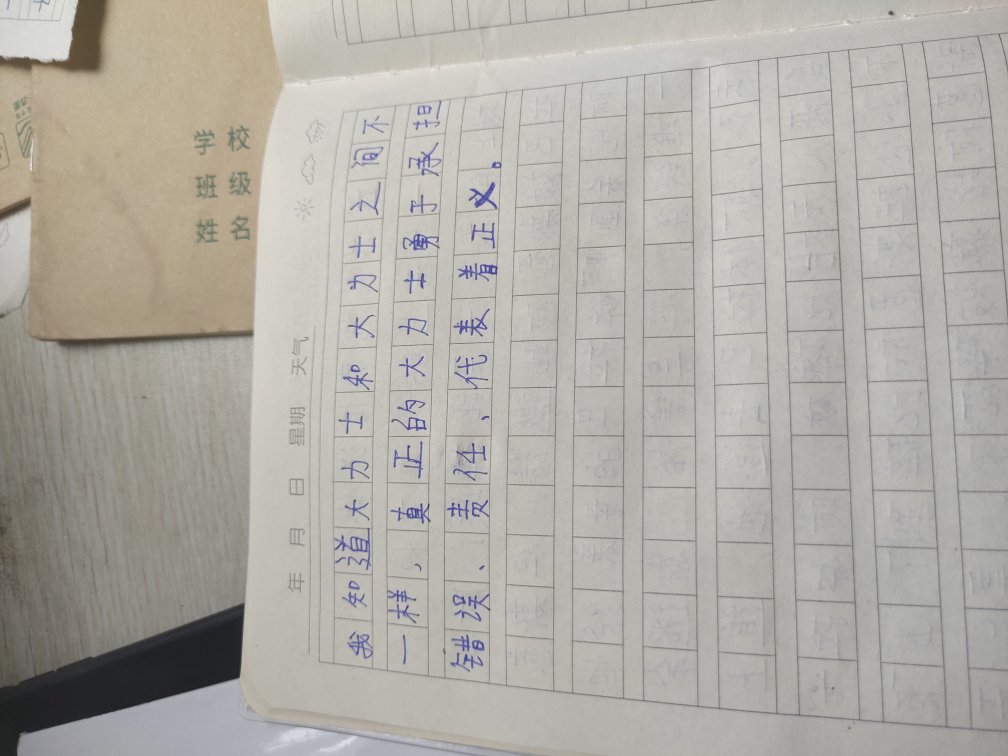 学校
班级
姓名
年 月 日 星期 天气
我知道大力士和大力士之间不
一样，真正的大力士勇于承担
错误、责任、代表着正义。